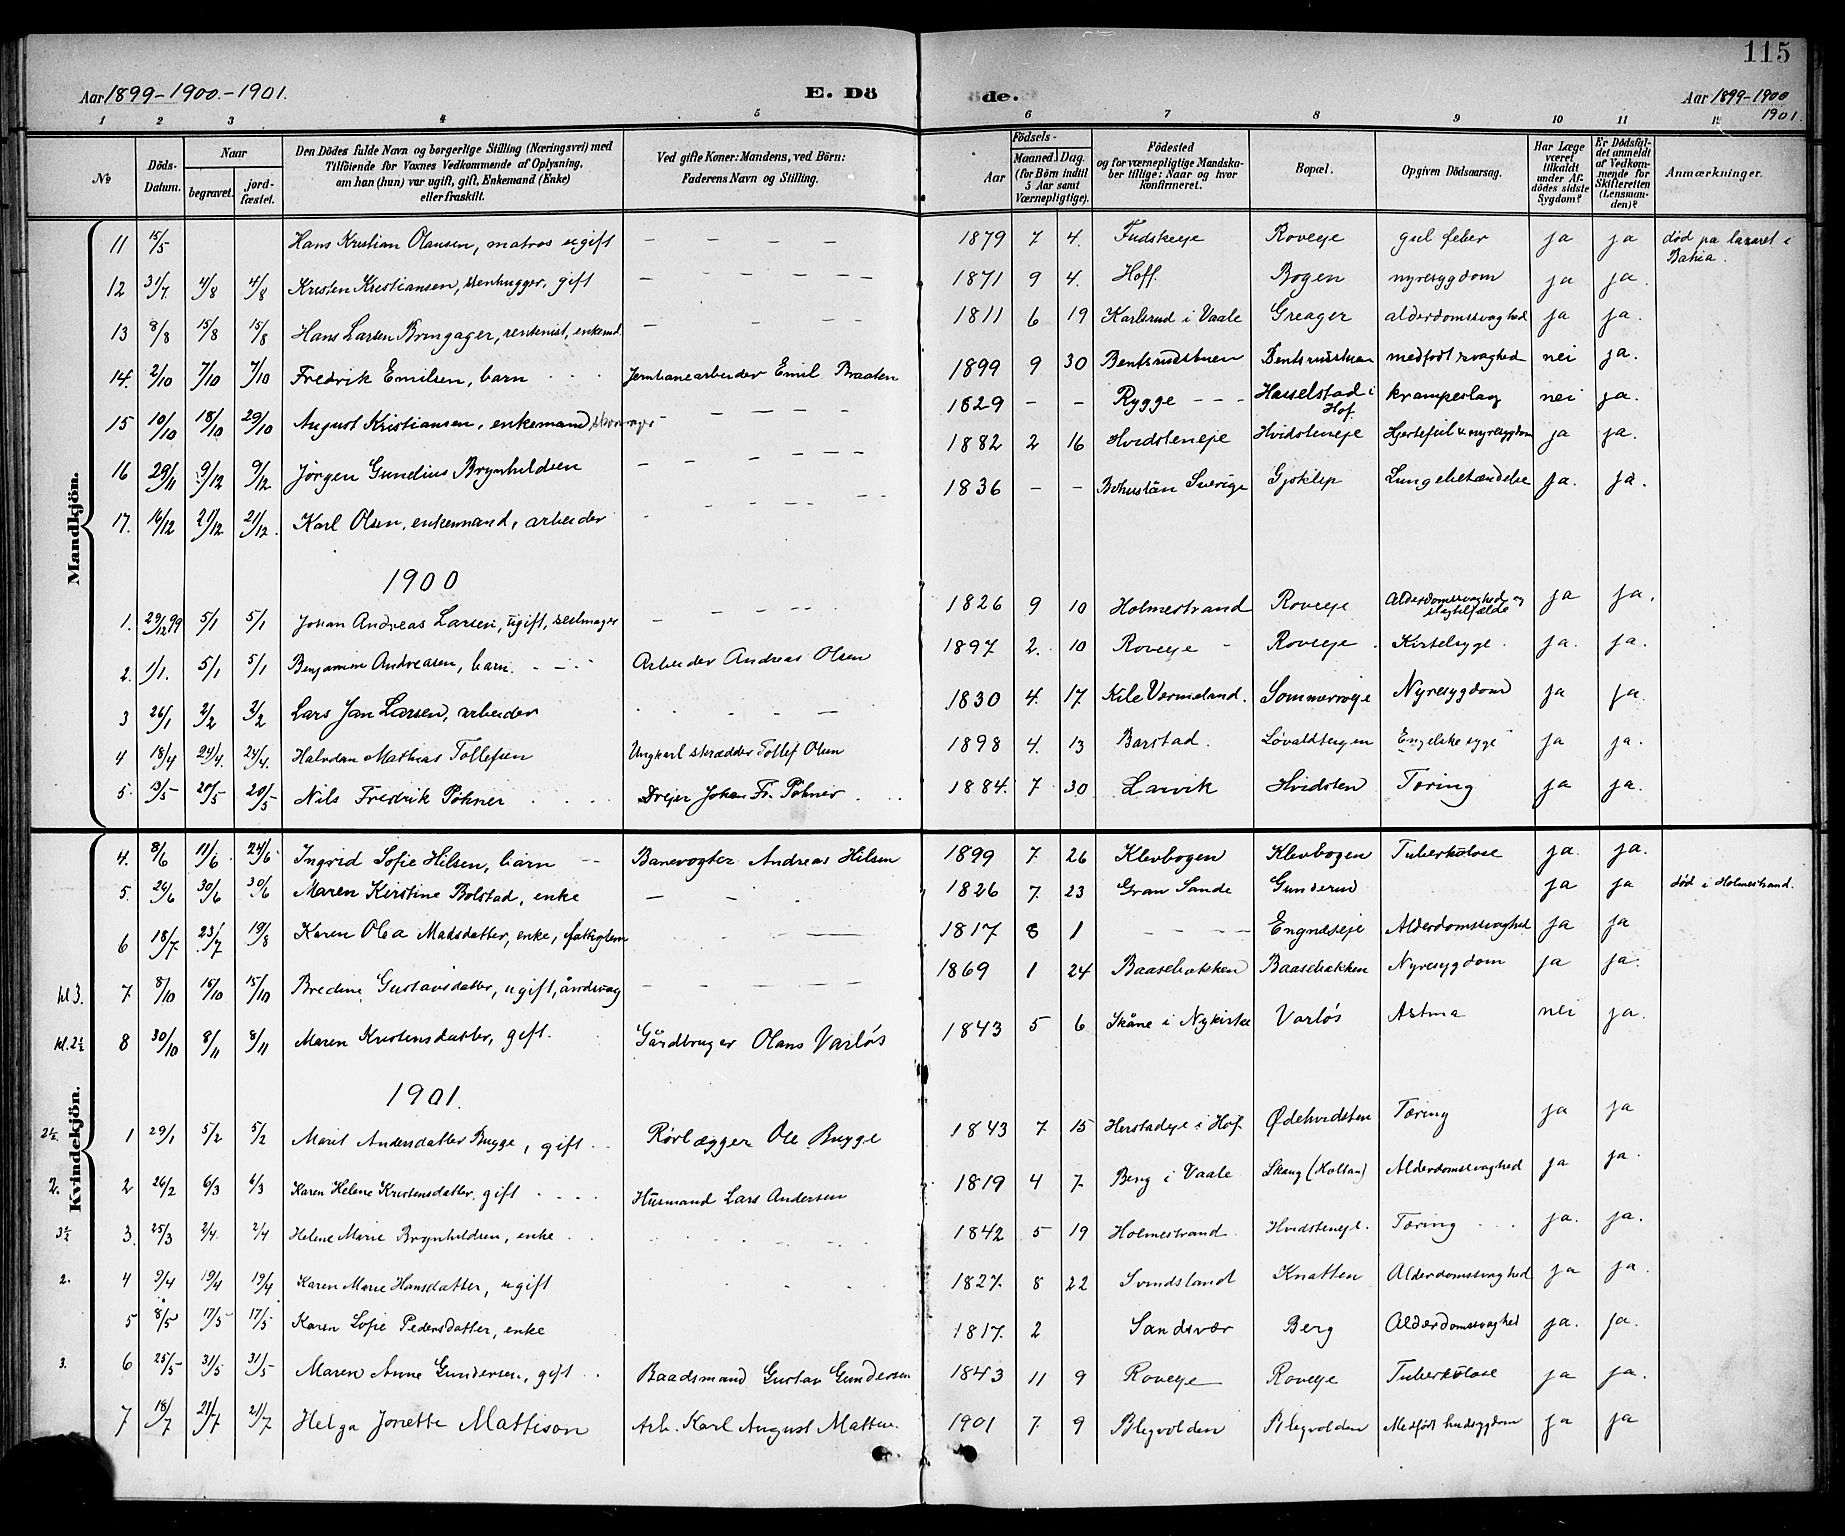 115
Aar 1899-1900.-1901. E. Dö de. Aar 1899-1900
1901.
1 2 3 4 5 6 7 8 9 10 11 12
No Döds-Datum. Naar begravet. jordfæstet. Den Dödes fulde Navn og borgerlige Stilling (Næringsvei) med Tilföiende for Voxnes Vedkommende af Oplysning, om han (hun) var ugift, gift, Enkemand (Enke) eller fraskilt. Ved gifte Koner: Mandens, ved Börn: Faderens Navn og Stilling. Aar Födsels- Maaned. Dag. (for Börn indtil 5 Aar samt Værnepligtige). Födested og for værnepligtige Mandskaber tillige: Naar og hvor konfirmeret. Bopæl. Opgiven Dödsaarsag. Har Læge været tilkaldt under Afdödes sidste Sygdom? Er Dödsfaldet anmeldt af Vedkommende for Skifteretten (Lensmanden)? Anmærkninger.
Mandkjön.
11 15/5 Hans Kristian Olausen, matros ugift — — — — — 1879 7 4. Fudskeje Roveje gul feber ja ja død pa lazaret i Bahia.
12 31/7 4/8 4/8 Kristen Kristiansen, stenhugger, gift — — — — — 1871 9 4. Hoff. Bogen nyresygdom ja ja.
13 8/8 15/8 15/8 Hans Larsen Bringager, rentenist, enkemd — — — — 1811 6 19 Karlsrud i Vaale Greager alderdomssvaghed ja ja.
14. 2/10 7/10 7/10 Fredrik Emilsen, barn Jernbanearbeider Emil Braaten 1899 9 30 Bentsrudstuen Bentsrudstuen medfödt svaghed nei ja.
15 10/10 18/10 29/10 August Kristiansen, enkemand, — — — — 1829 — — Rygge — — — Hasselstad i Hof. krampeslag nei ja.
16 29/11 9/12 9/12 Jörgen Gundius Brynhildsen — — — — — 1882 2 16 Hvidsteneje Hvidsteneje Hjertefeil & nyresygdom ja ja.
17. 16/12 21/12 21/12. Karl Olsen, enkemand, arbeider — — — — 1836 — — Bohuslän Sverige Gjøklep Lungebetændelse ja. ja.
1900
1. 29/12 99 5/1 5/1 Johan Andreas Larsen, ugift, seilmager — — — — 1826 9 10 Holmestrand Roveje Alderdomssvaghed og slagtilfælde ja ja.
2. 1/1. 5/1 5/1 Benjamin Andreasen, barn. Arbeider Andreas Olsen 1897 2. 10 Roveje Roveje. Kirtelsyge. ja. ja.
3 26/1 2/2 2/2 Lars Jan Larsen, arbeider 1830 4. 17. Kile Vermeland. Sommerroeje Nyresygdom ja ja.
4 18/4 24/4. 24/4. Halvdan Mathias Tollefsen Ungkarl skrædder Tollef Olsen 1898 4. 13 Barstad. Løvaldbergen Engelske syge ja ja.
5. 13/5 20/5 20/5 Nils Fredrik Pöhner Drejer Johan Fr. Pöhner 1884. 7 30 Larvik Hvidsten Tæring ja ja.
Kvindekjön.
4. 8/6 11/6 24/6 Ingrid Sofie Hilsen, barn Banevogter Andreas Hilsen 1899 7. 26 Klevbogen Klevbogen Tuberkulose ja. ja.
5. 26/6 30/6 30/6 Maren Kirstine Bolstad, enke — — 1826 7. 23 Gran Sande Gunderud ja ja død i Holmestrand.
6 18/7. 23/7 19/8 Karen Olea Madsdatter, enke, fattiglem 1817 8 1 — — — — Engnæseje Alderdomssvaghed ja ja
kl 3. 7 8/10 15/10 15/10 Bredine Gustavsdatter, ugift, åndsvag — — — — — 1869 1 24 Baasebakken Baasebakken Nyresygdom ja ja.
kl. 2½ 8 30/10 8/11 8/11 Maren Kristensdatter, gift. Gårdbruger Olaus Varløs 1843 5 6 Skåne i Nykirke Varløs Astma nei ja.
1901.
2½. 1 29/1 5/2 5/2 Marit Andersdatter Bugge, gift Rörlægger Ole Bugge 1843 7. 15 Herstadeje i Hof. Ødehvidsten Tæring ja ja
2. 2 26/2 6/3 6/3 Karen Helene Kristensdatter, gift Husmand Lars Andersen 1819 4 7. Berg i Vaale Skaug (Holtan) Alderdomssvaghed ja ja.
3½ 3. 25/3 2/4. 2/4 Helene Marie Brynhildsen, enke 1842 5 19 Holmestrand. Hvidsteneje. Tæring ja. ja.
2. 4 9/4 19/4 19/4 Karen Marie Hansdatter, ugift 1827. 8 22 Svindsland Knatten Alderdomssvaghed ja ja.
5 8/5 17/5 17/5 Karen Sofie Pedersdatter, enke 1817. 2 Sandsvær Berg Alderdomssvaghed ja. ja.
3. 6 25/5 31/5 31/5 Maren Anne Gundersen, gift Baadsmand Gustav Gundersen 1843 11 9 Roveje Roveje Tuberkulose ja ja.
7 18/7 21/7 21/7 Helga Jonette Mattison Arb. Karl August Mattis. 1901 7 9 Blegvolden Blegvolden Medfödt hudsygdom ja ja